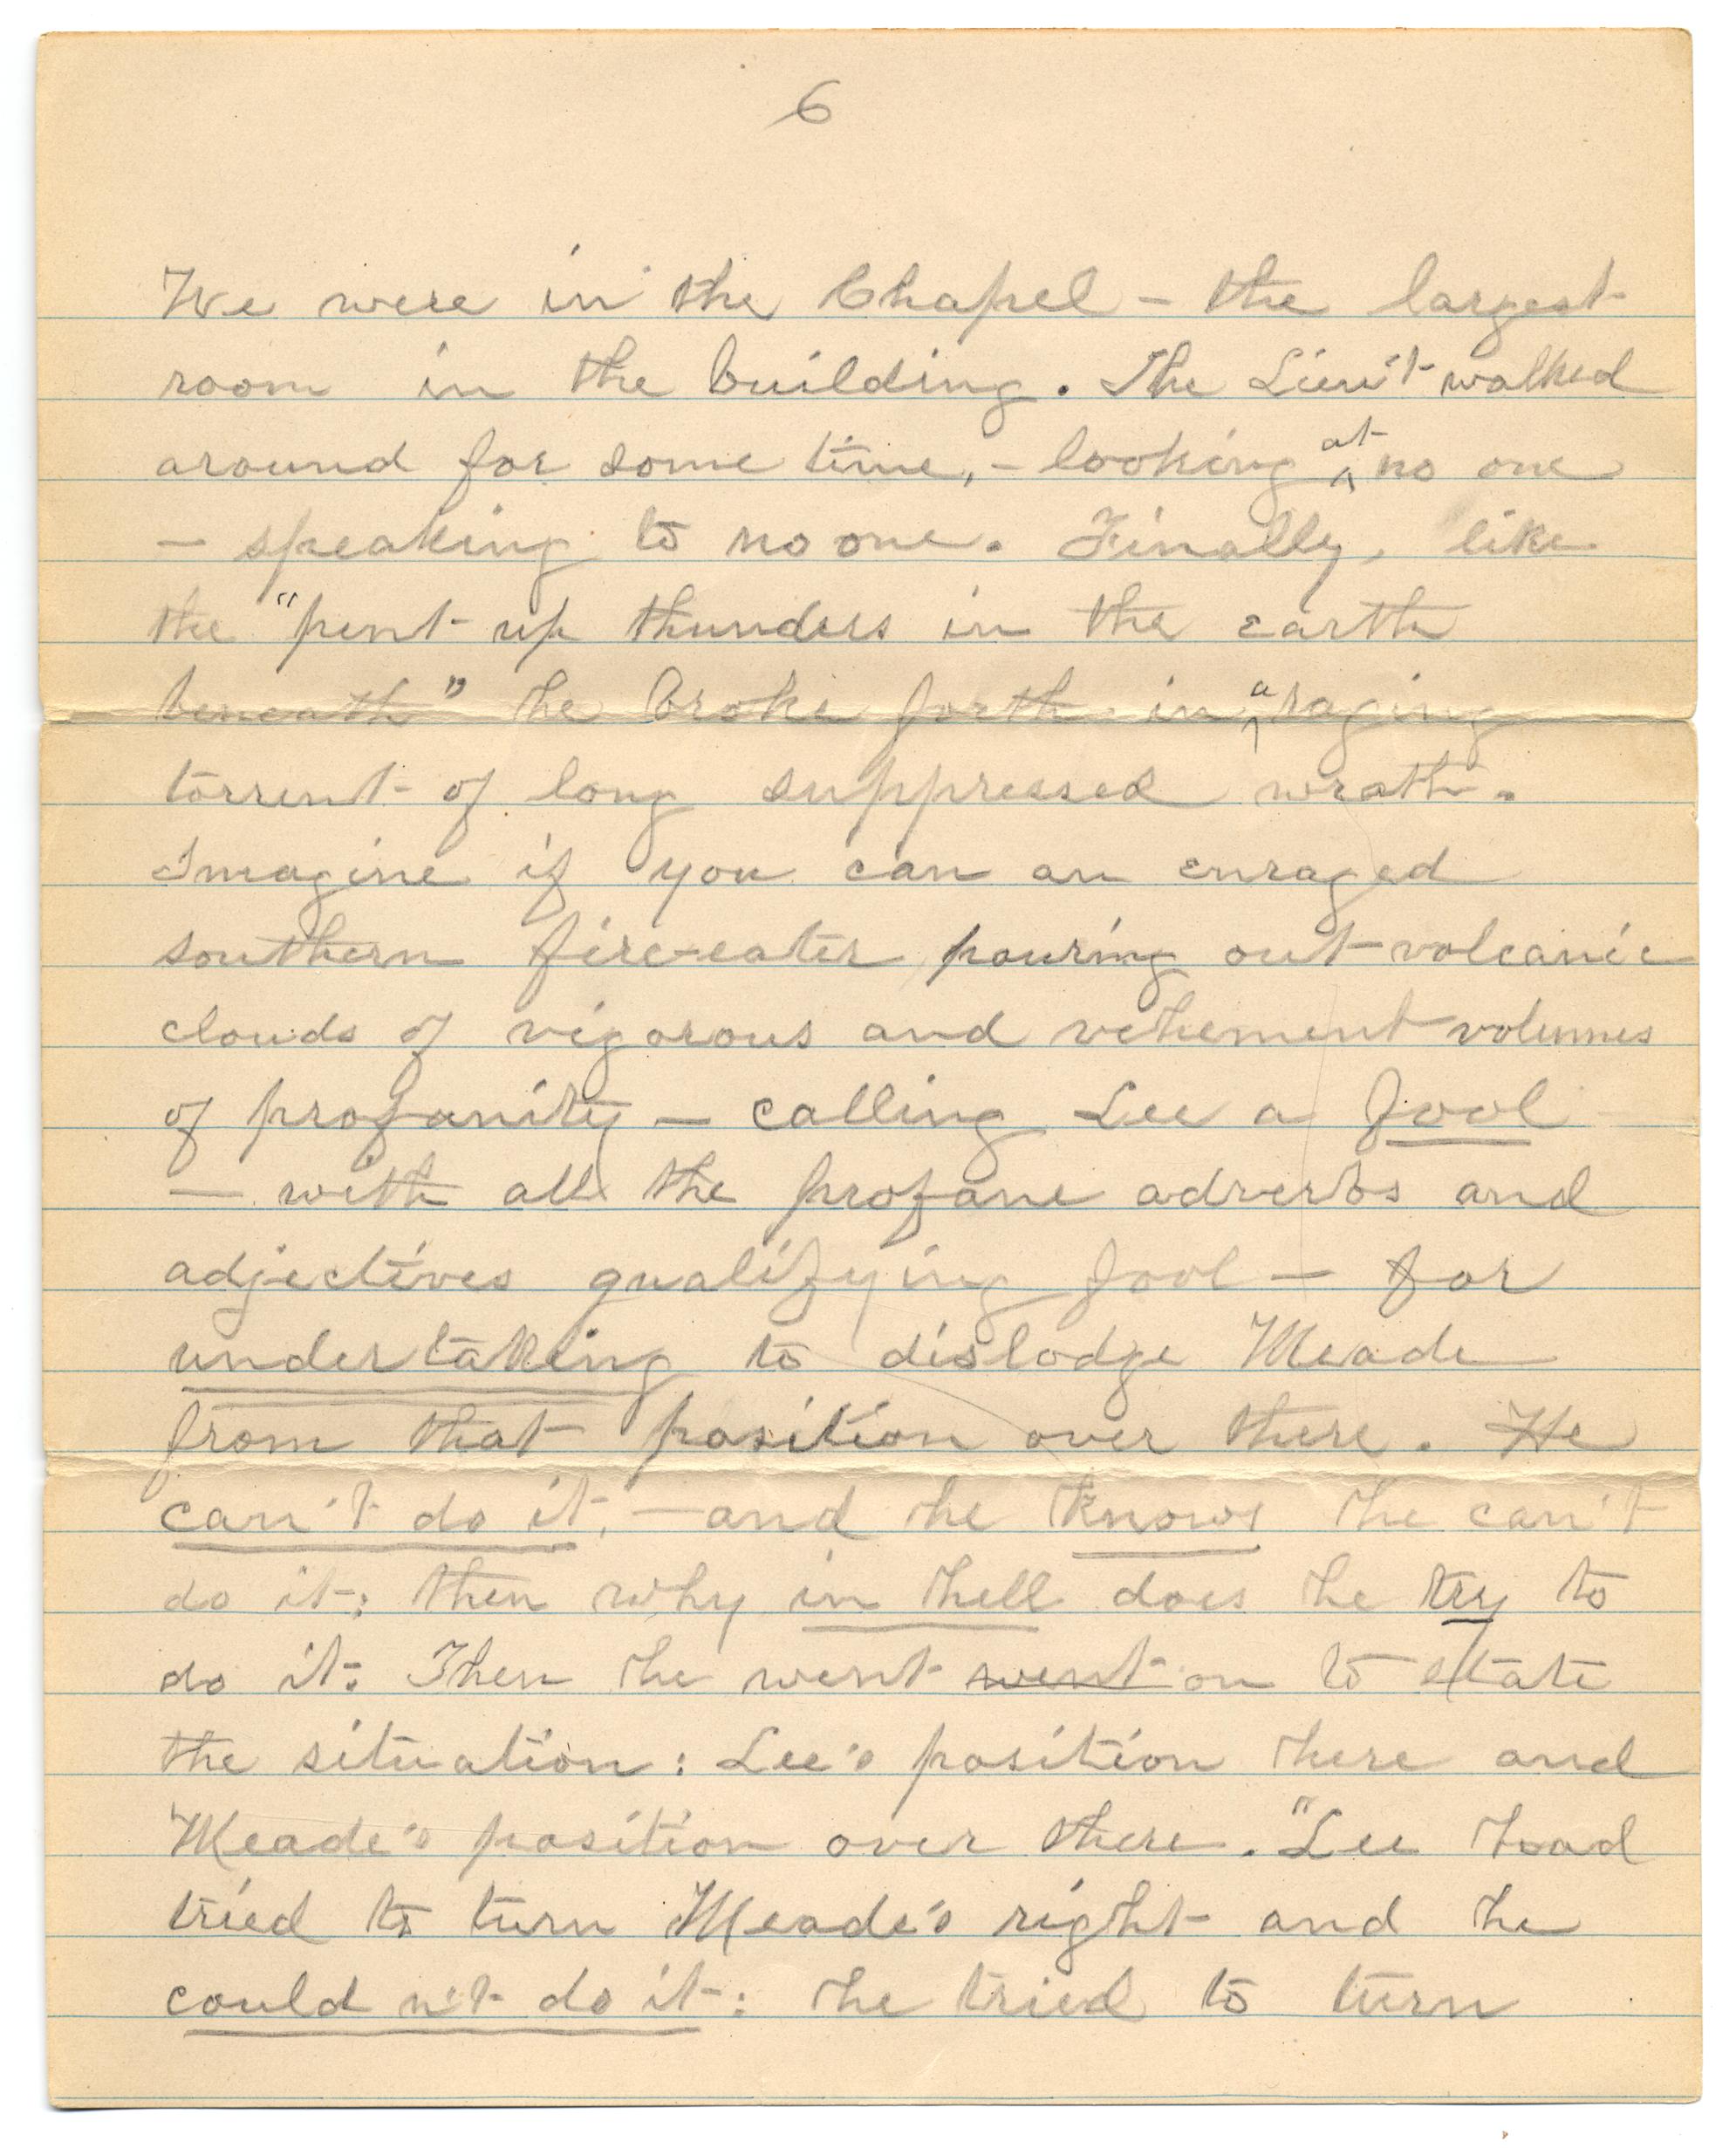 6
We were in the Chapel – the largest
room in the building. The Lieu't walked
around for some time, – looking at no one
– speaking to no one. Finally, like
the "pent-up thunders in the earth
beneath" he broke forth in a raging
torrent of long suppressed wrath.
Imagine if you can an enraged
southern fire-eater pouring out volcanic
clouds of vigorous and vehement volumes
of profanity – calling Lee a fool
– with all the profane adverbs and
adjectives qualifying fool – for
undertaking to dislodge Meade
from that position over there. He
can't do it, – and he knows he can't
do it; then why in hell does he try to
do it. Then he went went on to state
the situation: Lee's position here and
Meade's position over there. "Lee had
tried to turn Meade's right and he
could n't do it: he tried to turn